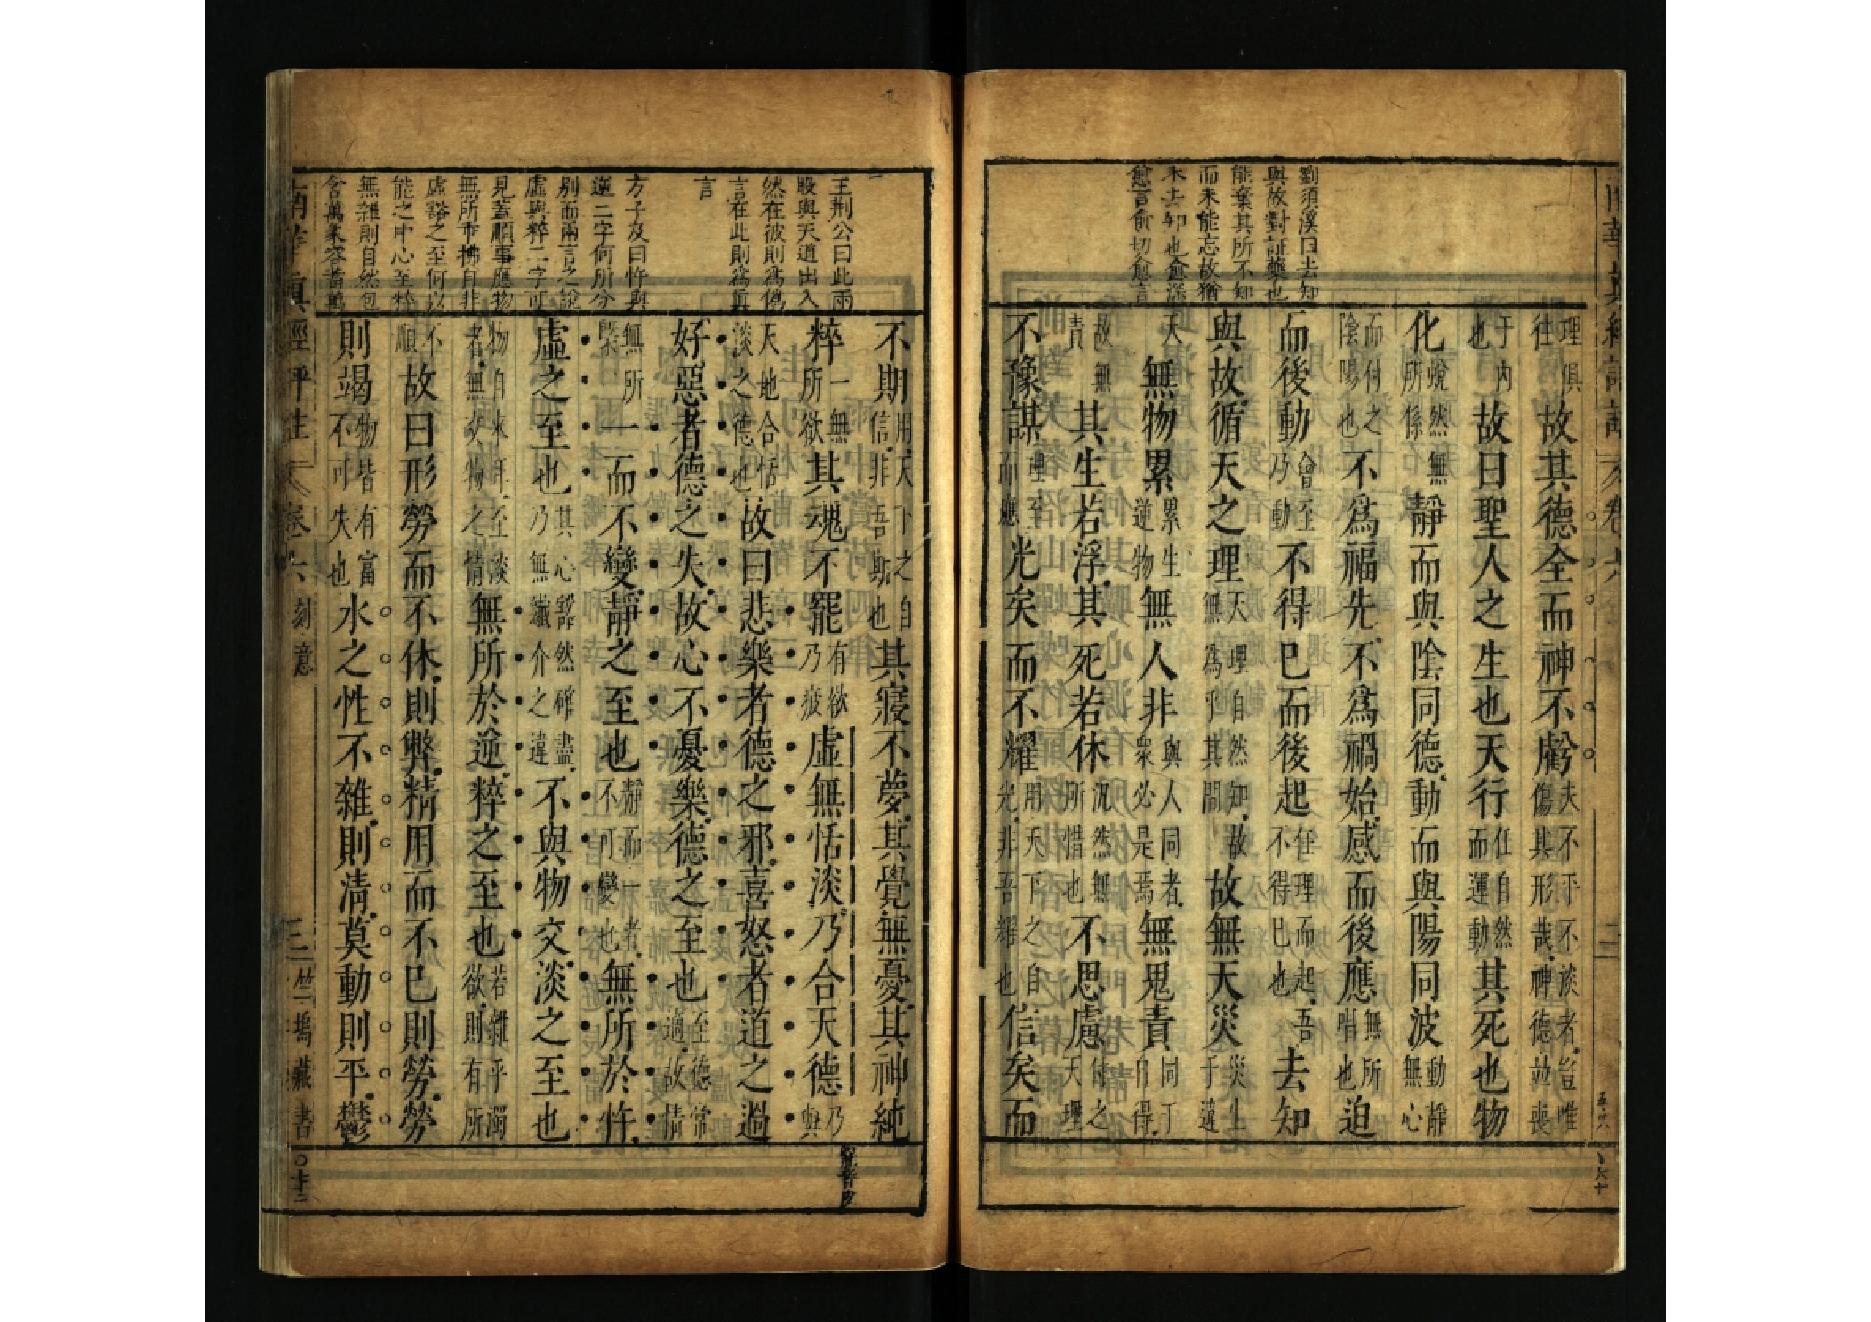 劉須溪曰去知
與故對証藥也
能棄其所不知
而未能忘故猶
未去知也愈深
愈言愈切愈言
理俱往故其德全而神不虧夫不平不淡者豈唯傷其形哉神德並喪
于内也故曰聖人之生也天行任自然而運動其死也物
化蛻然無所係靜而與陰同德動而與陽同波動靜無心
而付之陰陽也不爲福先不爲禍始感而後應無所唱也迫
而後動會至乃動不得已而後起任理而起吾不得已也去知
與故循天之理天理自然知故無爲乎其間故無天災災生于違
天無物累累生逆物無人非與人同者衆必是焉無鬼責同于自得
故無責其生若浮其死若休汎然無所惜也不思慮付之天理
不豫謀理至而應光矣而不耀用天下之自光非吾耀也信矣而
王荆公曰此兩
段與天道出入
然在彼則爲僞
言在此則爲眞
言
方子及曰忤與
逆二字何所分
別而兩言之說
虛與粹二字可
見蓋順事應物
無所乖拂自非
虛谿之至何以
能之中心至粹
無雜則自然包
含萬象容畜萬
不期用天下之自信非吾期也其寢不夢其覺無憂其神純
粹一無所欲其魂不罷有欲乃疲虛無恬淡乃合天德乃與
天地合恬淡之德也故曰悲樂者德之邪喜怒者道之過
好惡者德之失故心不憂樂德之至也至德常適故情
無所槩一而不變靜之至也靜而一者不可變也無所於忤
虛之至也其心豁然確盡乃無纎介之違不與物交淡之至也
物自來耳至淡者無交物之情無所於逆粹之至也若雜乎濁欲則有所
不順故曰形勞而不休則弊精用而不已則勞勞
則竭物皆有當不可失也水之性不雜則清莫動則平鬱
南華眞經評注
卷六
刻意
三
竺塢藏書